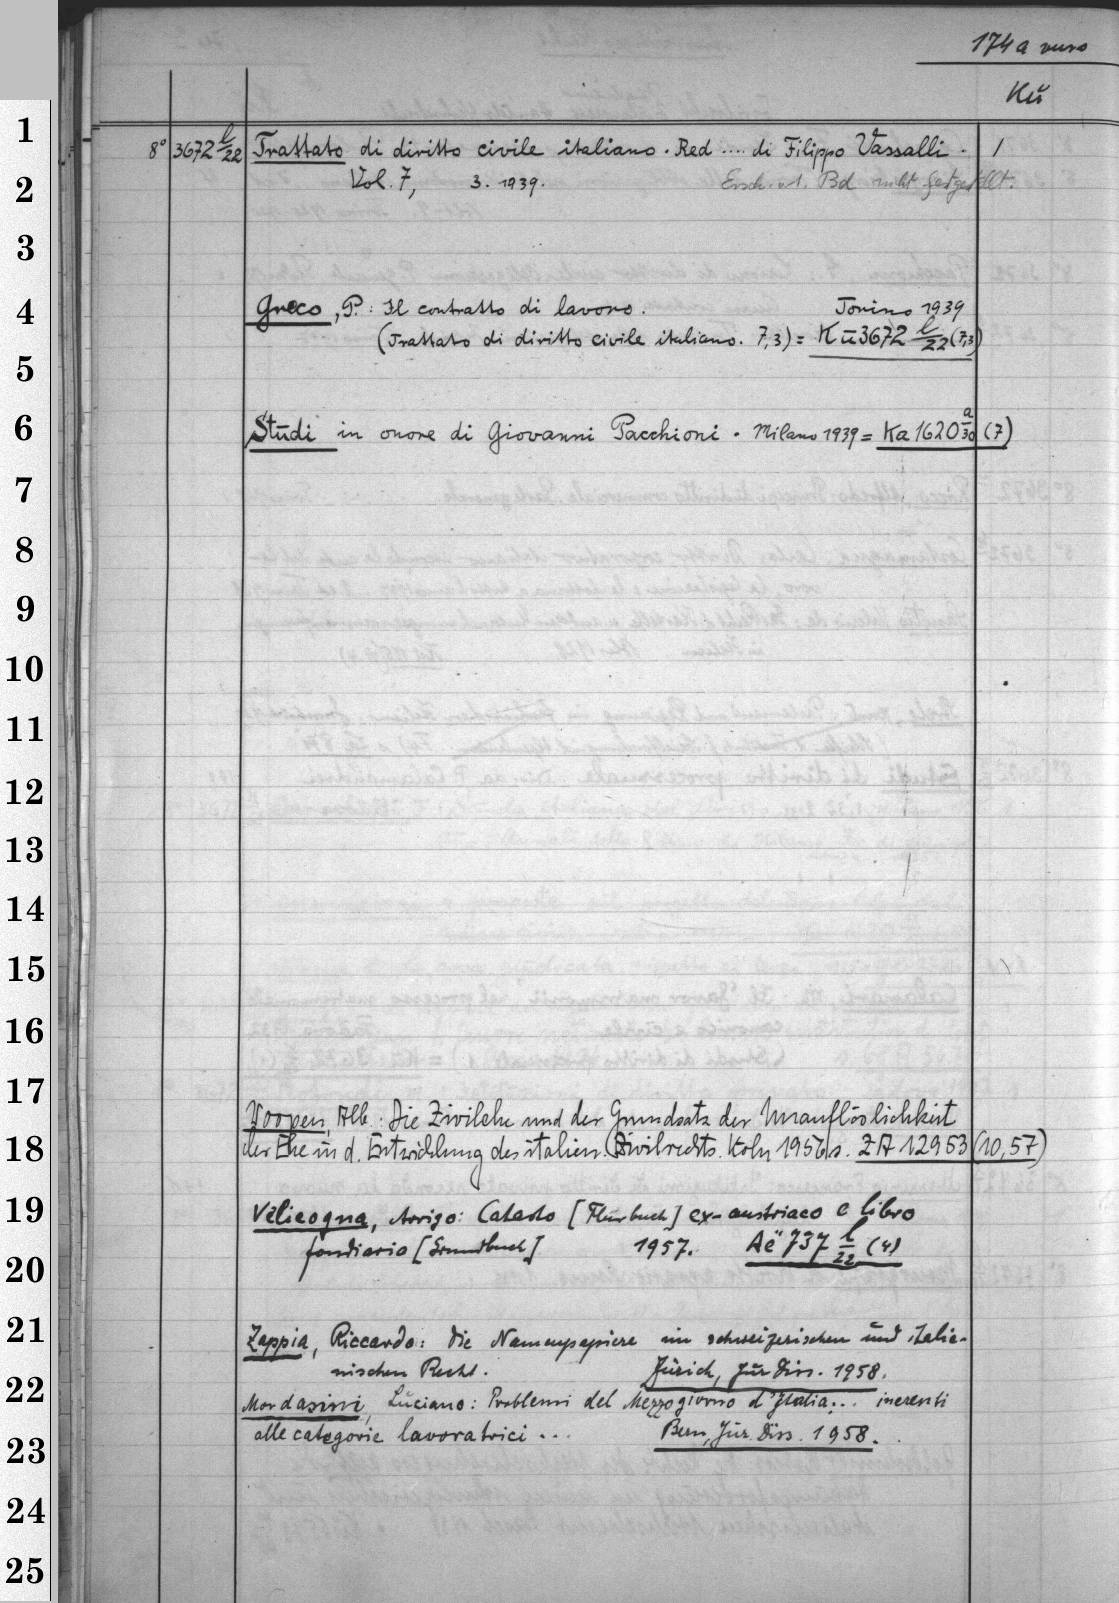 174a verso
Kü
1
8° 3672 l/22 Trattato di diritto civile italiano. Red .... di Filippo Vassalli. 1
2
Vol. 7, 3. 1939. Ersch. v. 1. Bd nicht festgestellt.
3
4
Greco, P.: Il contratto di lavoro. Torino 1939
(Trattato di diritto civile italiano. 7,3) = Kü 3672 l/22 (7,3)
5
6
Studi in onore di Giovanni Pacchioni. Milano 1939 = Ka 1620 a/30 (7)
7
8
9
10
11
12
13
14
15
16
17
Voopen, Alb.: Die Zivilehe und der Grundsatz der Unauflöslichkeit
18
der Ehe in d. Entwicklung des italien. Zivilrechts. Köln 1956 s. ZA 12953 (10,57)
19
Velicogna, Arrigo: Catasto [Flurbuch] ex-austriaco e libro
fondiario [Grundbuch] 1957. Aë 737 l/22 (4)
20
21
Zappia, Riccardo: Die Namenpapiere im schweizerischen und italie-
nischen Recht. Zürich, Jur. Diss. 1958.
22
Mordasini, Luciano: Problemi del Mezzogiorno d'Italia... inerenti
23
alle categorie lavoratrici ... Bern, Jur. Diss. 1958.
24
25